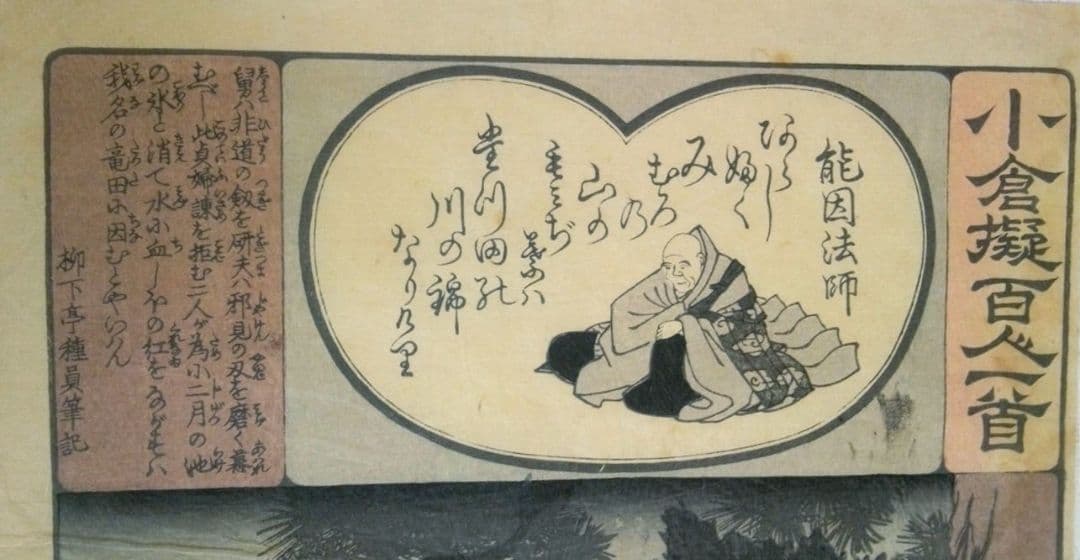 小倉擬百人一首
能因法師
あらし
ふく
み
むろ
の
山の
もみぢ
葉ハ
たつ田の
川の錦
なりけり
舅ハ非道の釼を研夫ハ邪見の刃を磨く
此貞婦諫を拒む二人が為に二月の池
の氷と消て水に血しほの紅をながすハ
我名の竜田に因むとやいはん
柳下亭種員筆記